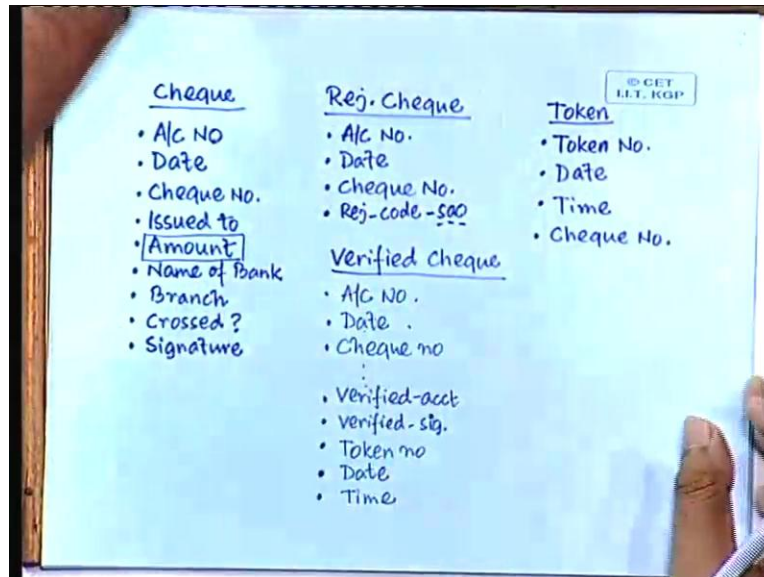 Cheque
• A/C NO
• Date
• Cheque No.
• Issued to
• Amount
• Name of Bank
• Branch
• Crossed?
• Signature
Rej. Cheque
• A/C No.
• Date
• Cheque No.
• Rej-code-SAO
Verified Cheque
• A/C NO.
• Date .
• Cheque no
:
• Verified-acct
• Verified-sig.
• Token no
• Date
• Time
© CET
I.I.T. KGP
Token
• Token No.
• Date
• Time
• Cheque No.